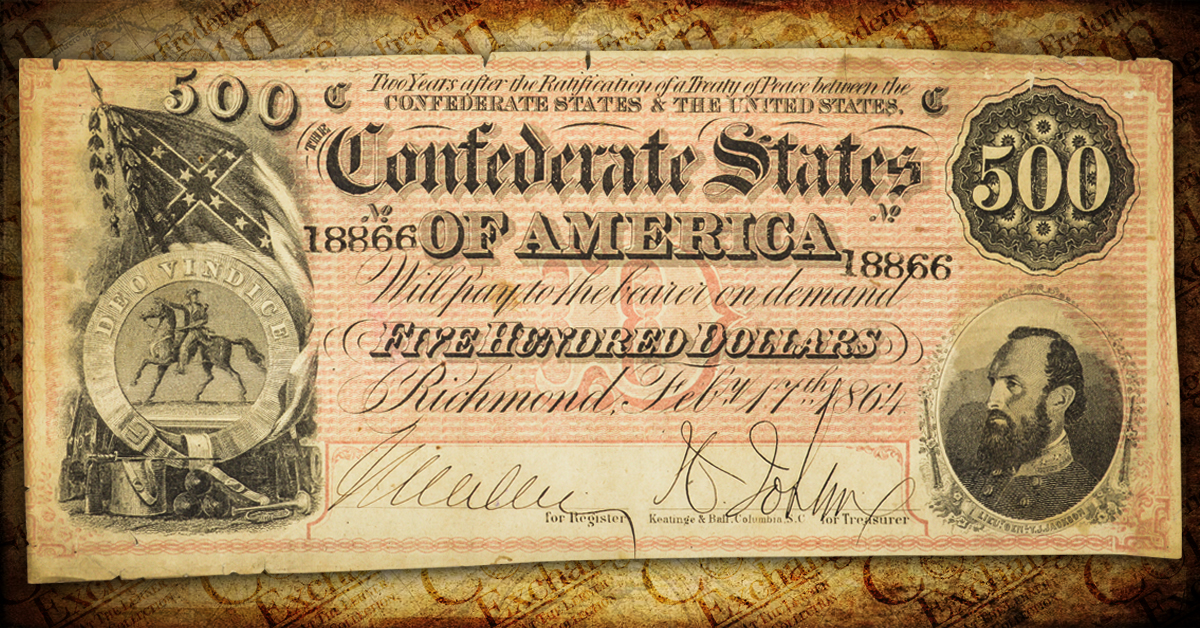 500
C
Two Years after the Ratification of a Treaty of Peace between the
CONFEDERATE STATES & THE UNITED STATES.
C
THE
Confederate States
500
No
No
18866
OF AMERICA
18866
DEO VINDICE
Will pay to the bearer on demand
FIVE HUNDRED DOLLARS
Richmond, Feby. 17th. 1864
for Register
Keatinge & Ball, Columbia, S.C
for Treasurer
LIEUT. GEN. T. J. JACKSON
Frederick
Frederick
Exchange